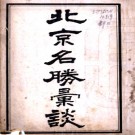 北京名勝彙談